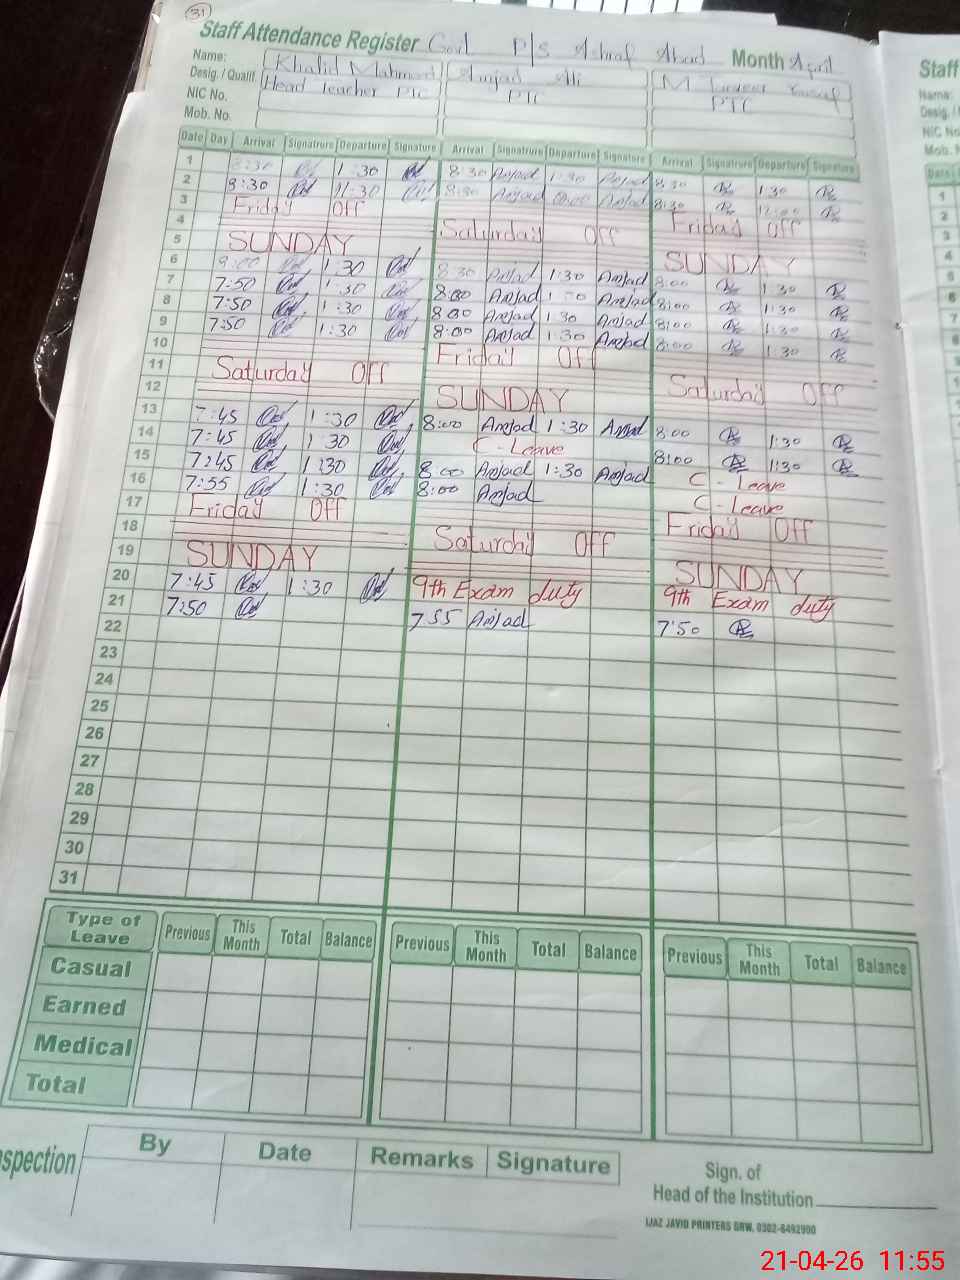 31
Staff Attendance Register Govt P/S Ashraf Abad Month April
Name: Khalid Mahmood Amjad Ali M
Desig. / Qualif. Head Teacher PTC PTC PTC
NIC No.
Mob. No.
Date Day Arrival Signatrure Departure Signature Arrival Signatrure Departure Signature Arrival Signatrure Departure Signature
1 8:30 1:30 8:30 Amjad 1:30 Amjad 8:30 1:30
2 8:30 11:30 8:30 Amjad Amjad 8:30 12:00
3 Friday Off Friday Off
4 Saturday Off
5 SUNDAY SUNDAY
6 8:00 1:30 8:30 Amjad 1:30 Amjad 8:00 1:30
7 7:50 1:30 8:00 Amjad 1:30 Amjad 8:00 1:30
8 7:50 1:30 8:00 Amjad 1:30 Amjad 8:00 1:30
9 7:50 1:30 8:00 Amjad 1:30 Amjad 8:00 1:30
10 Friday Off
11 Saturday Off Saturday Off
12 SUNDAY
13 7:45 1:30 8:00 Amjad 1:30 Amjad 8:00 1:30
14 7:45 1:30 C-Leave 8:00 1:30
15 7:45 1:30 8:00 Amjad 1:30 Amjad C-Leave
16 7:55 1:30 8:00 Amjad C-Leave
17 Friday Off Friday Off
18 Saturday Off
19 SUNDAY SUNDAY
20 7:45 1:30 9th Exam duty 9th Exam duty
21 7:50 7:55 Amjad 7:50
22
23
24
25
26
27
28
29
30
31
Type of Leave Previous This Month Total Balance Previous This Month Total Balance Previous This Month Total Balance
Casual
Earned
Medical
Total
spection By Date Remarks Signature
Sign. of
Head of the Institution
IJAZ JAVID PRINTERS GRW. 0302-6492900
Staff
Name:
Desig. /
NIC No
Mob. N
Date
1
2
3
4
5
6
7
8
9
21-04-26 11:55